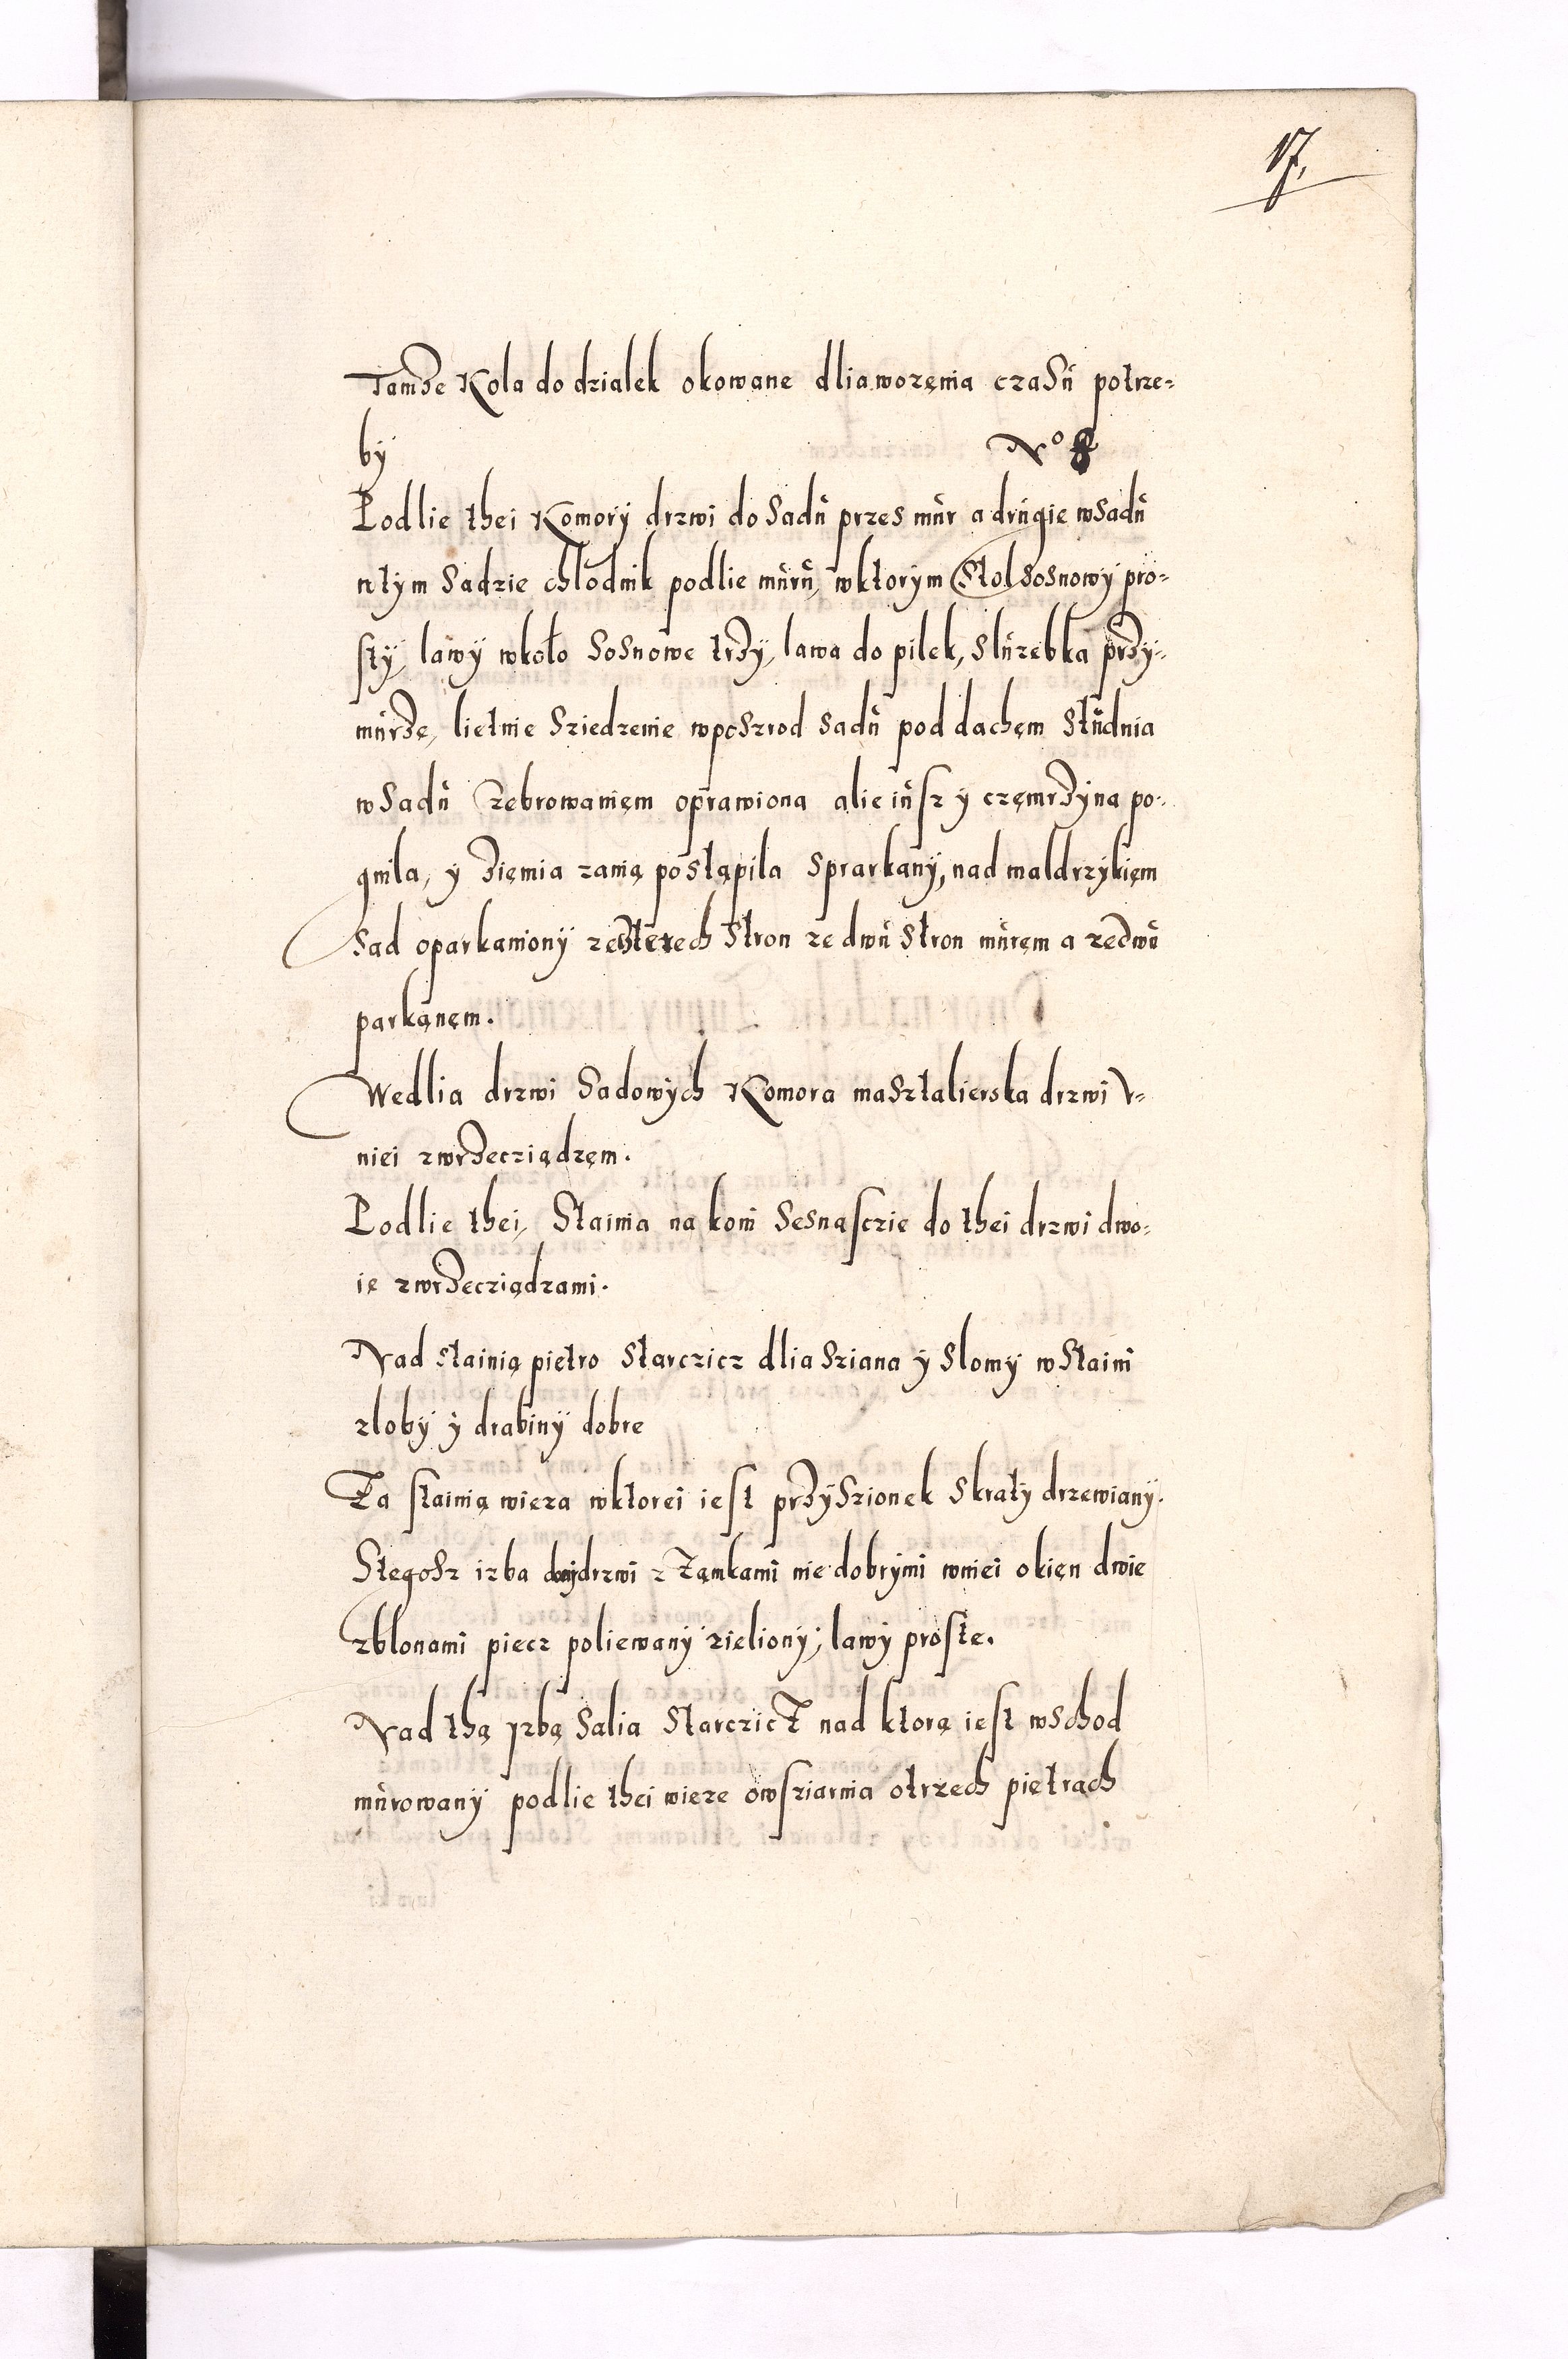 17.
Tamże Kola do dzialek okowane dlia wozęnia czasu potrze=
by N° 8
Podlie thei Komory drzwi do Sadu przes mur a drugie wsadu
wtym Sadzie chlodnik podlie muru, wktorym Stol sosnowy pro=
sty, lawy wkoło Sosnowe trży, lawa do pilek, sluzebka przy=
murże, lietnie Sziedzenie wposzrod sadu pod dachęm Studnia
w Sadu Zebrowanięm oprawiona alie iusz y częmrżyna po=
gnila, y żięmia zanią postąpila Sprarkany, nad maldrzykięm
Sad oparkaniony ze szterech Stron ze dwu Stron muręm a zedwu
parkanęm.
Wedlia drzwi Sadowych Komora masztalierska drzwi V=
niei zwrżecziądzęm.
Podlie thei, Stainia na koni Sesnasczie do thei drzwi dwo=
ie zwrżecziądzami.
Nad stainią piętro Starczicz dlia Sziana y Slomy w Staini
zloby y drabiny dobre
Za stainią wieza wktorei iest przySzionek Skraty drzewiany.
Stegosz izba drzwi z Zamkami nie dobrymi wniei okięn dwie
zblonami piecz poliewany zieliony, lawy proste.
Nad thą yzbą Salia StarczicZ nad ktorą iest wschod
murowany podlie thei wieze owsziarnia otrzech pietrach